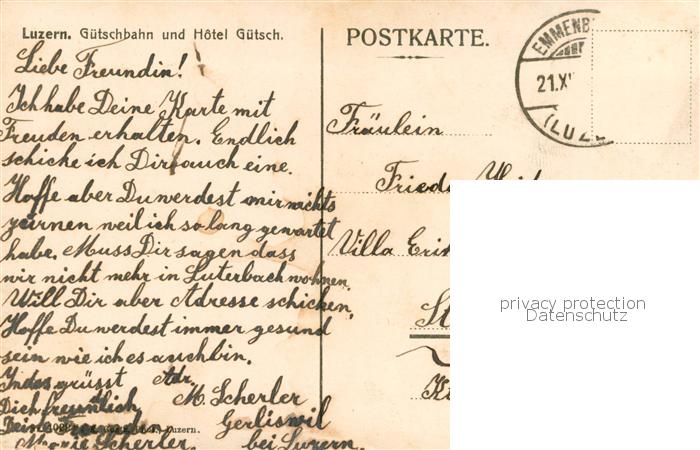 Luzern. Gütschbahn und Hôtel Gütsch.
POSTKARTE.
EMMENB
21.X
(LUZE
Liebe Freundin!
Ich habe Deine Karte mit
Freuden erhalten. Endlich
schicke ich Dir auch eine.
Hoffe aber Du werdest mir nichts
zürnen weil ich so lang gewartet
habe. Muss Dir sagen dass
wir nicht mehr in Luterbach wohnen.
Will Dir aber Adresse schicken.
Hoffe Du werdest immer gesund
sein wie ich es auch bin.
Indes grüsst
Dich freundlich
Deine
Marie Scherler.
Adr.
M. Scherler
Gerliswil
bei Luzern.
Luzern.
Fräulein
Frieda
Villa Eri
privacy protection
Datenschutz